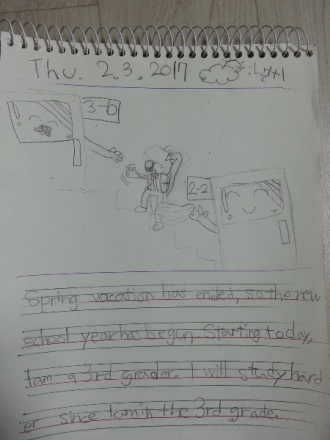 Thu. 2.3.2017 :날씨
3-6
2-2
Spring vacation has ended, so the new
school year has begun. Starting today,
I am a 3rd grader. I will study hard
er since I am in the 3rd grade.